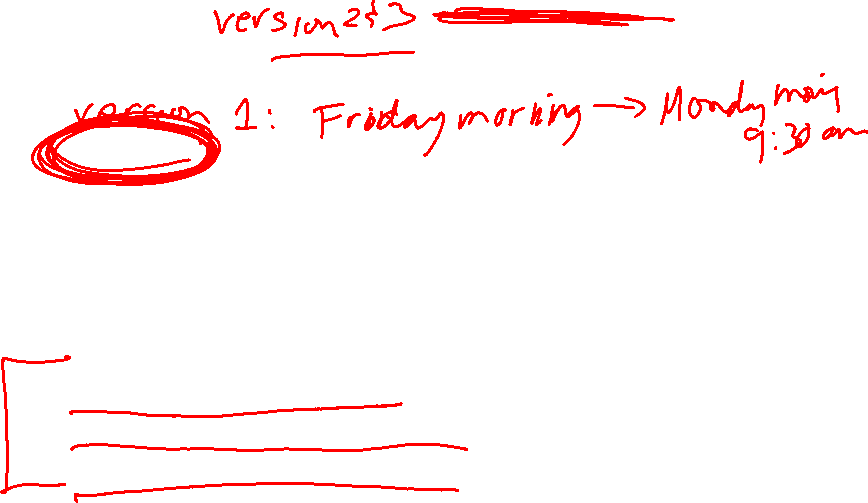 version 2 & 3
version 1: Friday morning → Monday
9:30 am